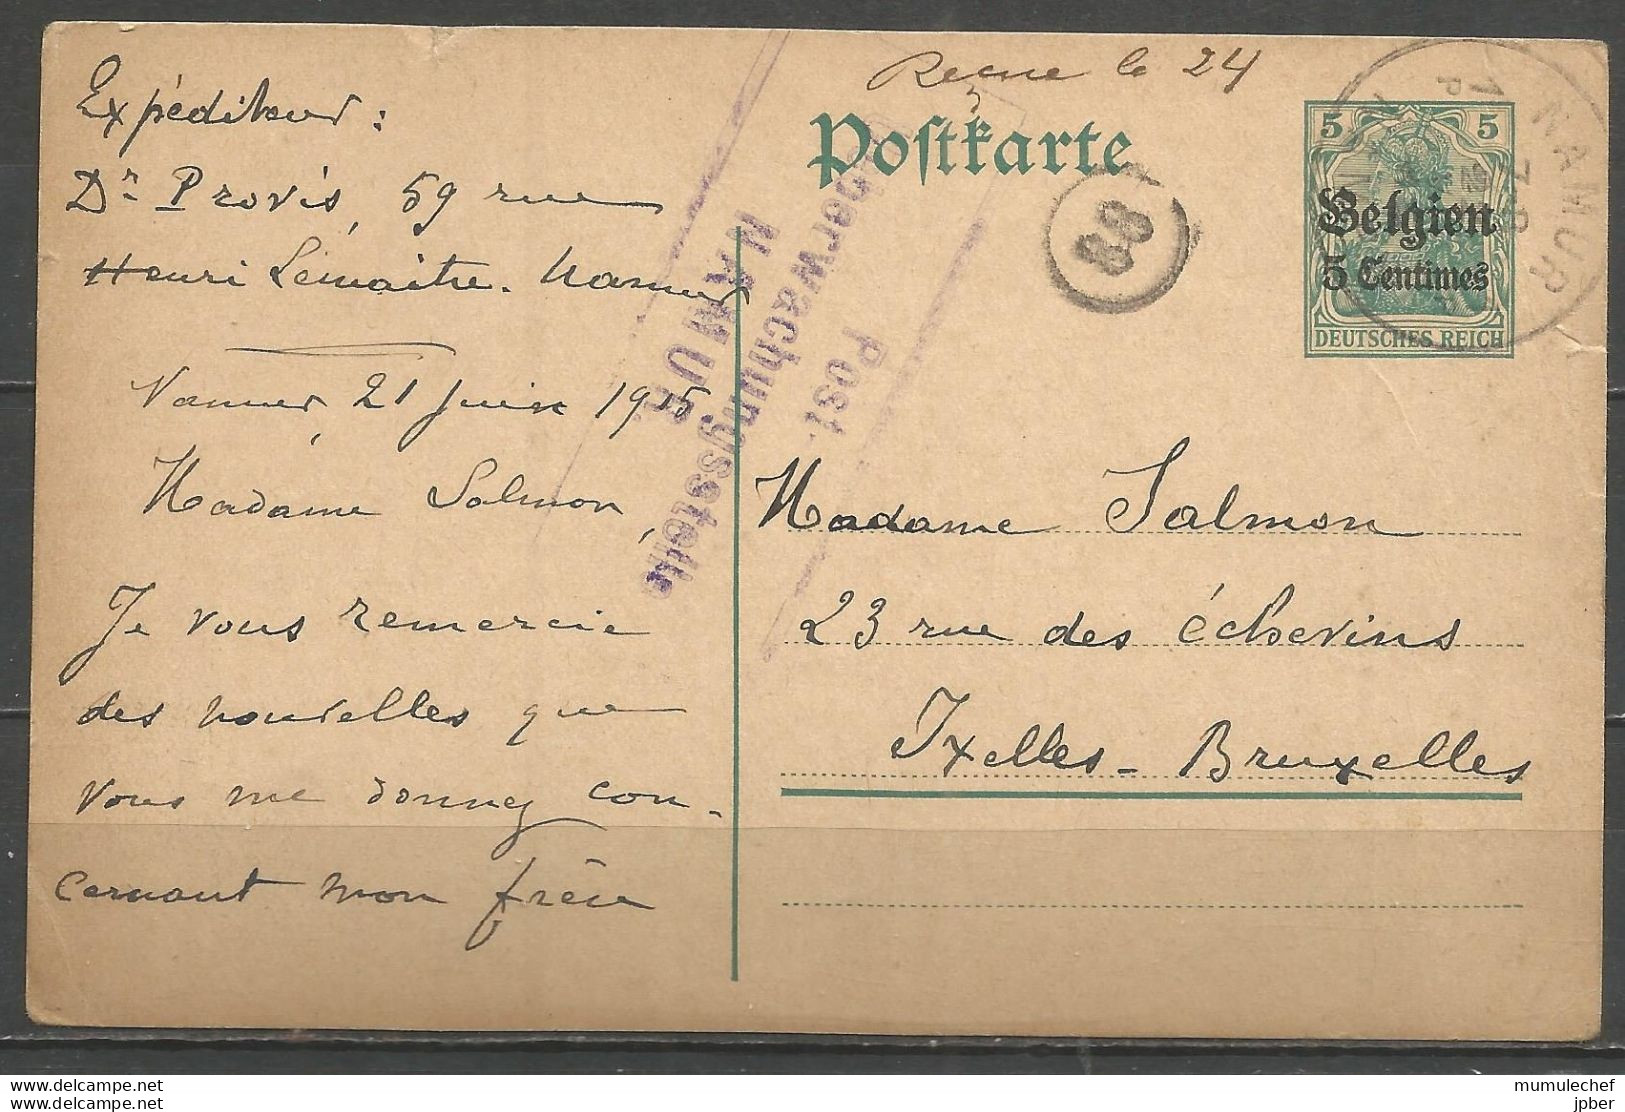 Expéditeur :
Dr Provis, 59 rue
Henri Lemaitre. Namur
Namur 21 Juin 1915
Madame Salmon,
Je vous remercie
des nouvelles que
vous me donnez con-
cernant mon frère
Recue le 24
Postkarte
88
Post.
Überwachungsstelle
NAMUR.
NAMUR
5 5
Belgien
5 Centimes
DEUTSCHES REICH
Madame Salmon
23 rue des échevins
Ixelles - Bruxelles
www.delcampe.net
www.delcampe.net
mumulechef
jpber